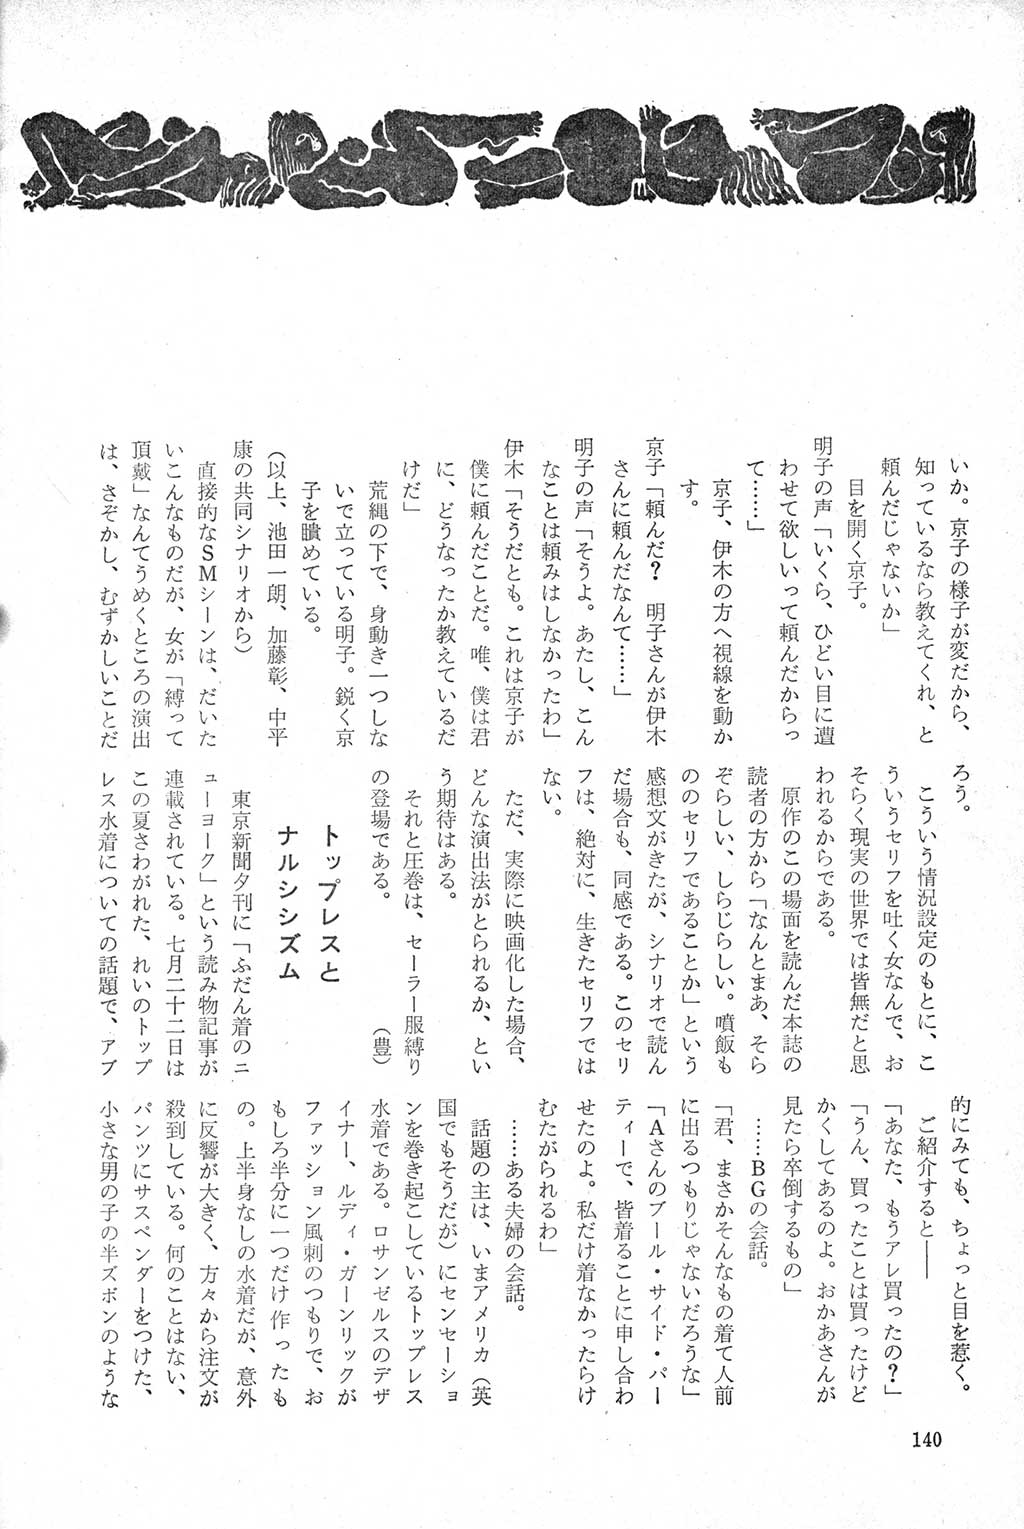 いか。京子の様子が変だから、
知っているなら教えてくれ、と
頼んだじゃないか」
目を開く京子。
明子の声「いくら、ひどい目に遭
わせて欲しいって頼んだからっ
て……」
京子、伊木の方へ視線を動か
す。
京子「頼んだ？　明子さんが伊木
さんに頼んだなんて……」
明子の声「そうよ。あたし、こん
なことは頼みはしなかったわ」
伊木「そうだとも。これは京子が
僕に頼んだことだ。唯、僕は君
に、どうなったか教えているだ
けだ」
荒縄の下で、身動き一つしな
いで立っている明子。鋭く京
子を瞶めている。
（以上、池田一朗、加藤彰、中平
康の共同シナリオから）
直接的なＳＭシーンは、だいた
いこんなものだが、女が「縛って
頂戴」なんてうめくところの演出
は、さぞかし、むずかしいことだ
ろう。
こういう情況設定のもとに、こ
ういうセリフを吐く女なんで、お
そらく現実の世界では皆無だと思
われるからである。
原作のこの場面を読んだ本誌の
読者の方から「なんとまあ、そら
ぞらしい、しらじらしい。噴飯も
ののセリフであることか」という
感想文がきたが、シナリオで読ん
だ場合も、同感である。このセリ
フは、絶対に、生きたセリフでは
ない。
ただ、実際に映画化した場合、
どんな演出法がとられるか、とい
う期待はある。
それと圧巻は、セーラー服縛り
の登場である。　　　　　（豊）
トップレスと
ナルシシズム
東京新聞夕刊に「ふだん着のニ
ューヨーク」という読み物記事が
連載されている。七月二十二日は
この夏さわがれた、れいのトップ
レス水着についての話題で、アブ
的にみても、ちょっと目を惹く。
ご紹介すると――
「あなた、もうアレ買ったの？」
「うん、買ったことは買ったけど
かくしてあるのよ。おかあさんが
見たら卒倒するもの」
……ＢＧの会話。
「君、まさかそんなもの着て人前
に出るつもりじゃないだろうな」
「Ａさんのプール・サイド・パー
ティーで、皆着ることに申し合わ
せたのよ。私だけ着なかったらけ
むたがられるわ」
……ある夫婦の会話。
話題の主は、いまアメリカ（英
国でもそうだが）にセンセーショ
ンを巻き起こしているトップレス
水着である。ロサンゼルスのデザ
イナー、ルディ・ガーンリックが
ファッション風刺のつもりで、お
もしろ半分に一つだけ作ったも
の。上半身なしの水着だが、意外
に反響が大きく、方々から注文が
殺到している。何のことはない、
パンツにサスペンダーをつけた、
小さな男の子の半ズボンのような
140